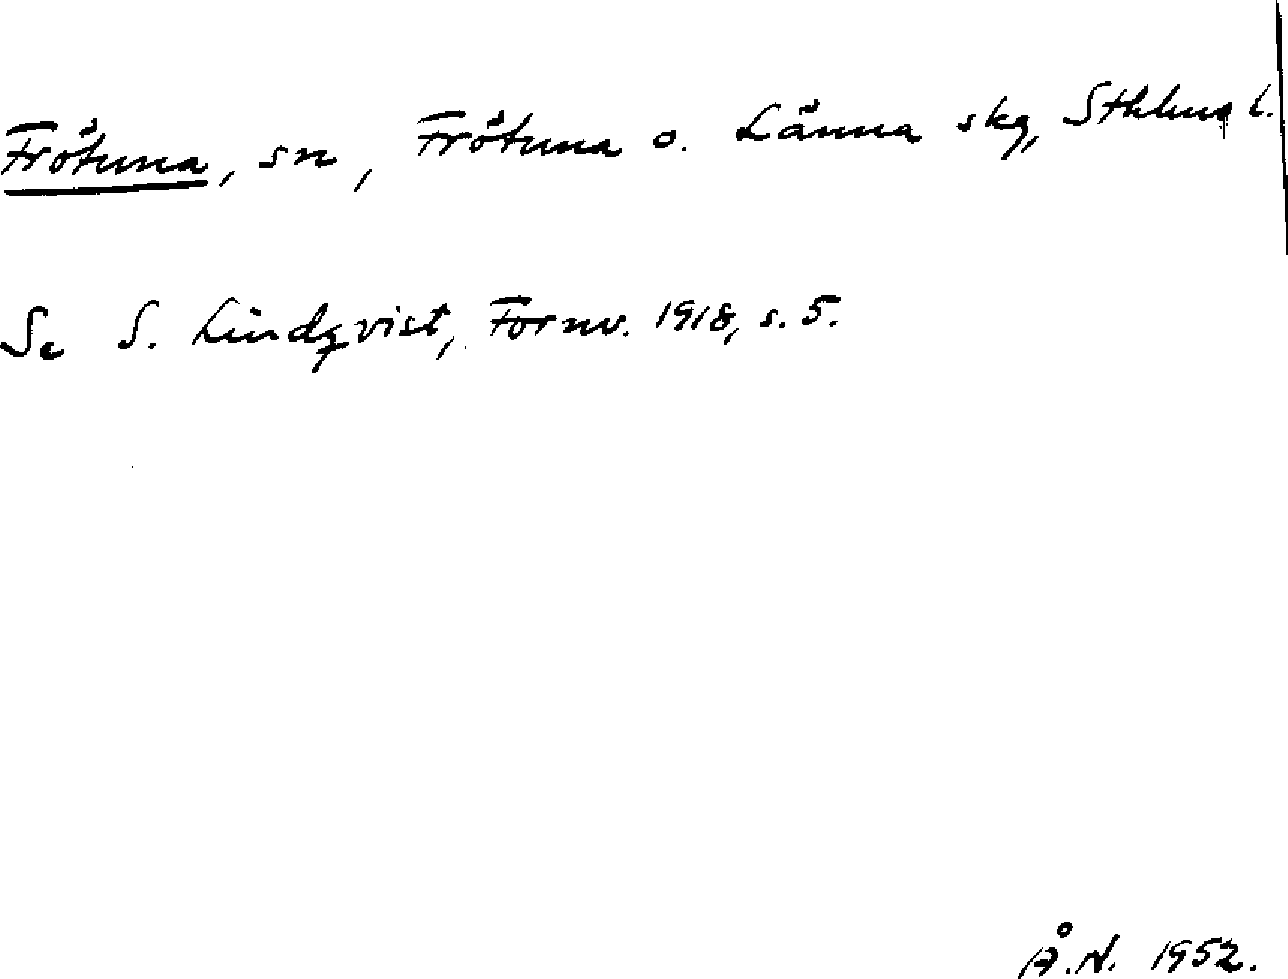 Frötuna, sn, Frötuna o. Länna skg, Sthlms l.
Se S. Lindqvist, Fornv. 1918, s. 5.
Å.N. 1952.